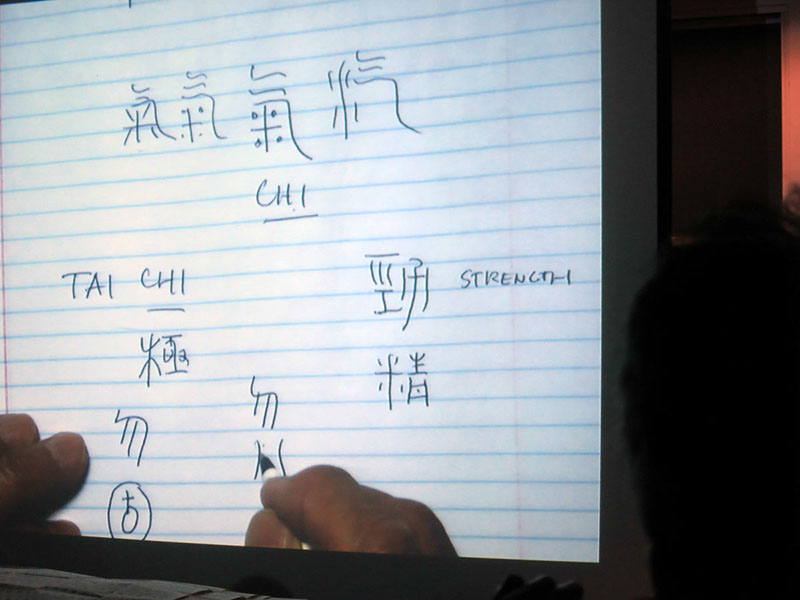 氣 氣 氣
CHI
TAI CHI 勁 STRENGTH
極 精
勿 勿